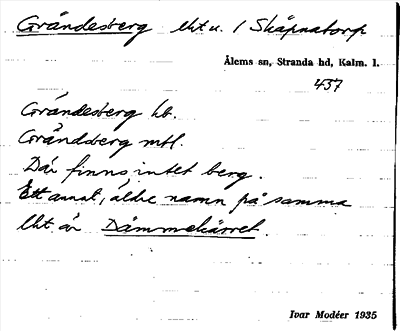 Grändesberg lht u. / Skäpnatorp
Ålems sn, Stranda hd, Kalm. l.
457
Grändesberg hb.
Grändsberg mtl.
Där finns intet berg.
Ett annat, äldre namn på samma
lht är Dämmekärret.
Ivar Modéer 1935